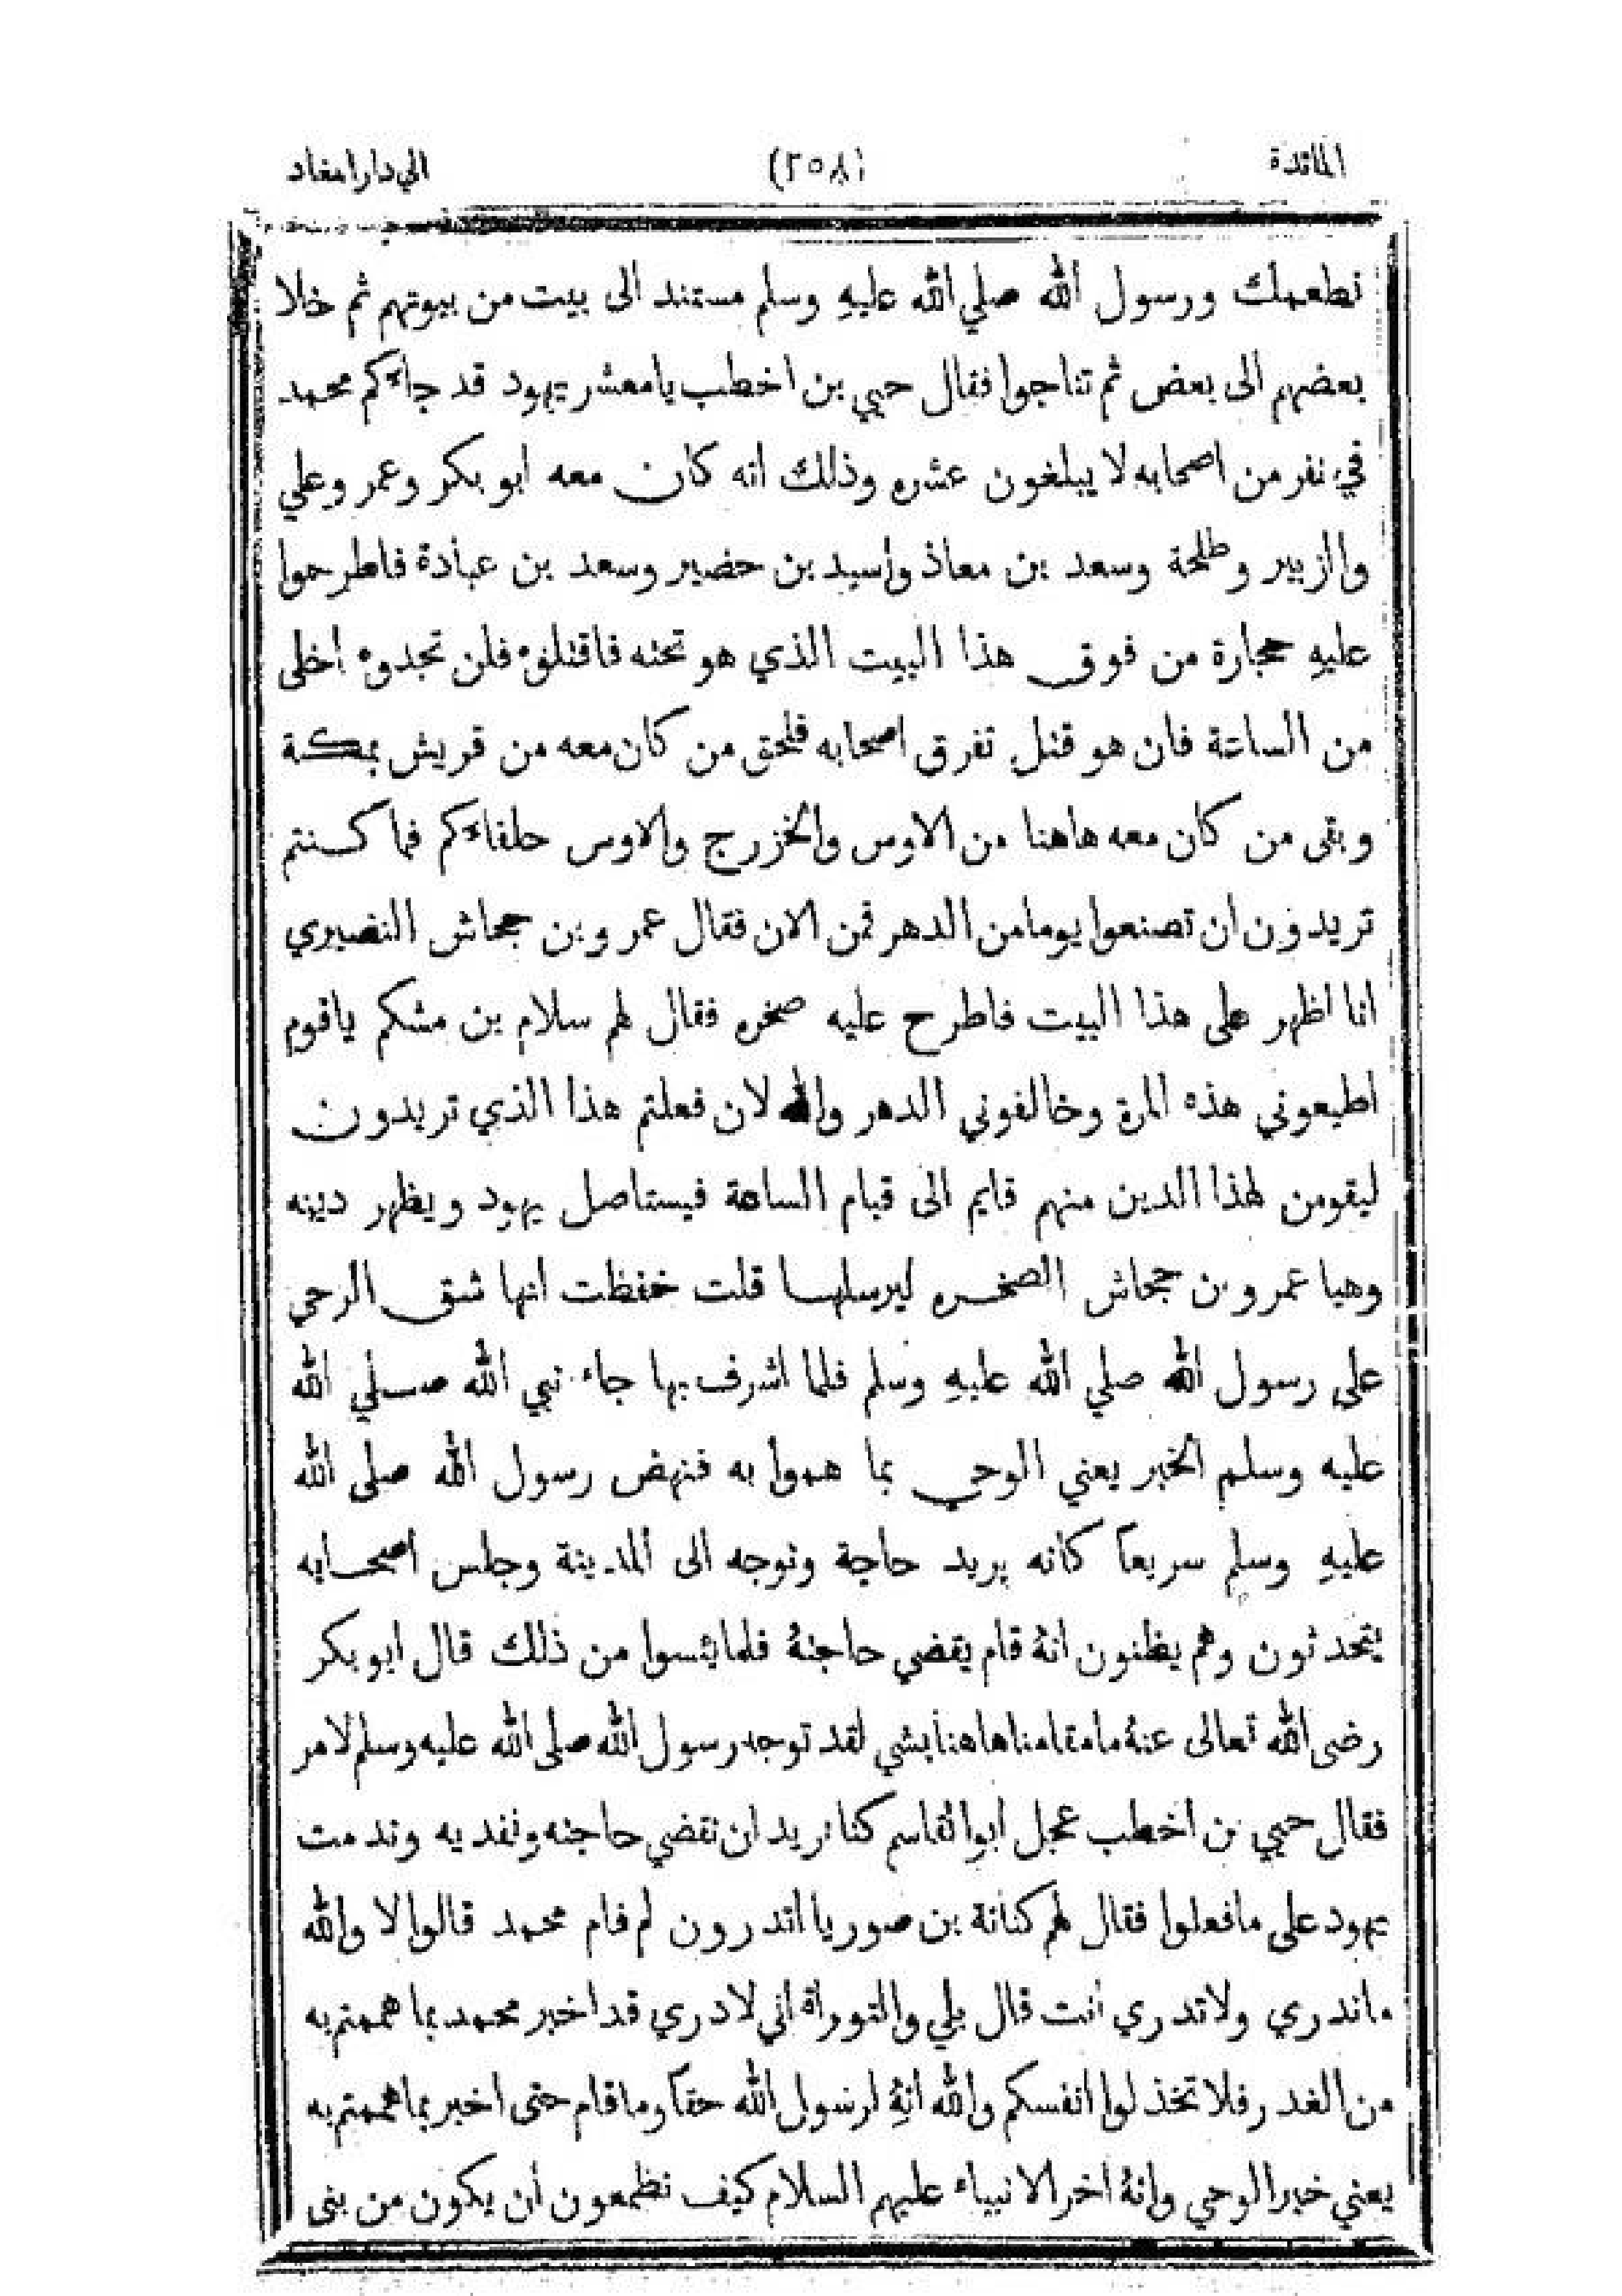 المائدة (٢٥٨) الي دارامغاد
نطعمك ورسول الله صلي الله عليهِ وسلم مستند الى بيت من بيوتهم ثم خلا
بعضهم الى بعض ثم تناجوا فقال حيي بن اخطب يا معشر يهود قد جاءكم محمد
في نفر من اصحابه لا يبلغون عشره وذلك انه كان معه ابو بكر وعمر وعلي
والزبير وطلحة وسعد بن معاذ واسيد بن حضير وسعد بن عبادة فاطرحوا
عليهِ حجارة من فوق هذا البيت الذي هو تحته فاقتلوهُ فلن تجدوهُ اخلى
من الساعة فان هو قتل تفرق اصحابه فلحق من كان معه من قريش بمكة
وبقى من كان معه هاهنا من الاوس والخزرج والاوس حلفاءكم فما كنتم
تريدون ان تصنعوا يوما من الدهر فمن الان فقال عمرو بن جحاش النضيري
انا اظهر على هذا البيت فاطرح عليه صخره فقال لهم سلام بن مشكم يا قوم
اطيعوني هذه المرة وخالفوني الدهر والله لان فعلتم هذا الذي تريدون
ليقومن لهذا الدين منهم قايم الى قيام الساعة فيستاصل يهود ويظهر دينه
وهيا عمرو بن جحاش الصخره ليرسلها قلت خفظت انها شق الرحى
على رسول الله صلي الله عليهِ وسلم فلما اشرف بها جاء نبي الله صلي الله
عليه وسلم الخبر يعني الوحي بما هموا به فنهض رسول الله صلى الله
عليهِ وسلم سريعاً كأنه يريد حاجة وتوجه الى المدينة وجلس اصحابه
يتحدثون وهم يظنون انهُ قام يقضي حاجتهُ فلما يئسوا من ذلك قال ابو بكر
رضى الله تعالى عنهُ ما مقامنا هاهنا بشي لقد توجه رسول الله صلى الله عليه وسلم لامر
فقال حيي بن اخطب عجل ابو القاسم كنا نريد ان نقضي حاجته ونفديه وندمت
يهود على ما فعلوا فقال لهم كنانة بن صوريا اتدرون لم قام محمد قالوا لا والله
ماندري ولا تدري أنت قال بلي والتوراة اني لادري قد اخبر محمد بما هممتم به
من الغدر فلا تخذلوا انفسكم والله انهُ لرسول الله حقاً وما قام حتى اخبر بما هممتم به
يعني خبر الوحي وانهُ اخر الانبياء عليهم السلام كيف تطمعون أن يكون من بنى